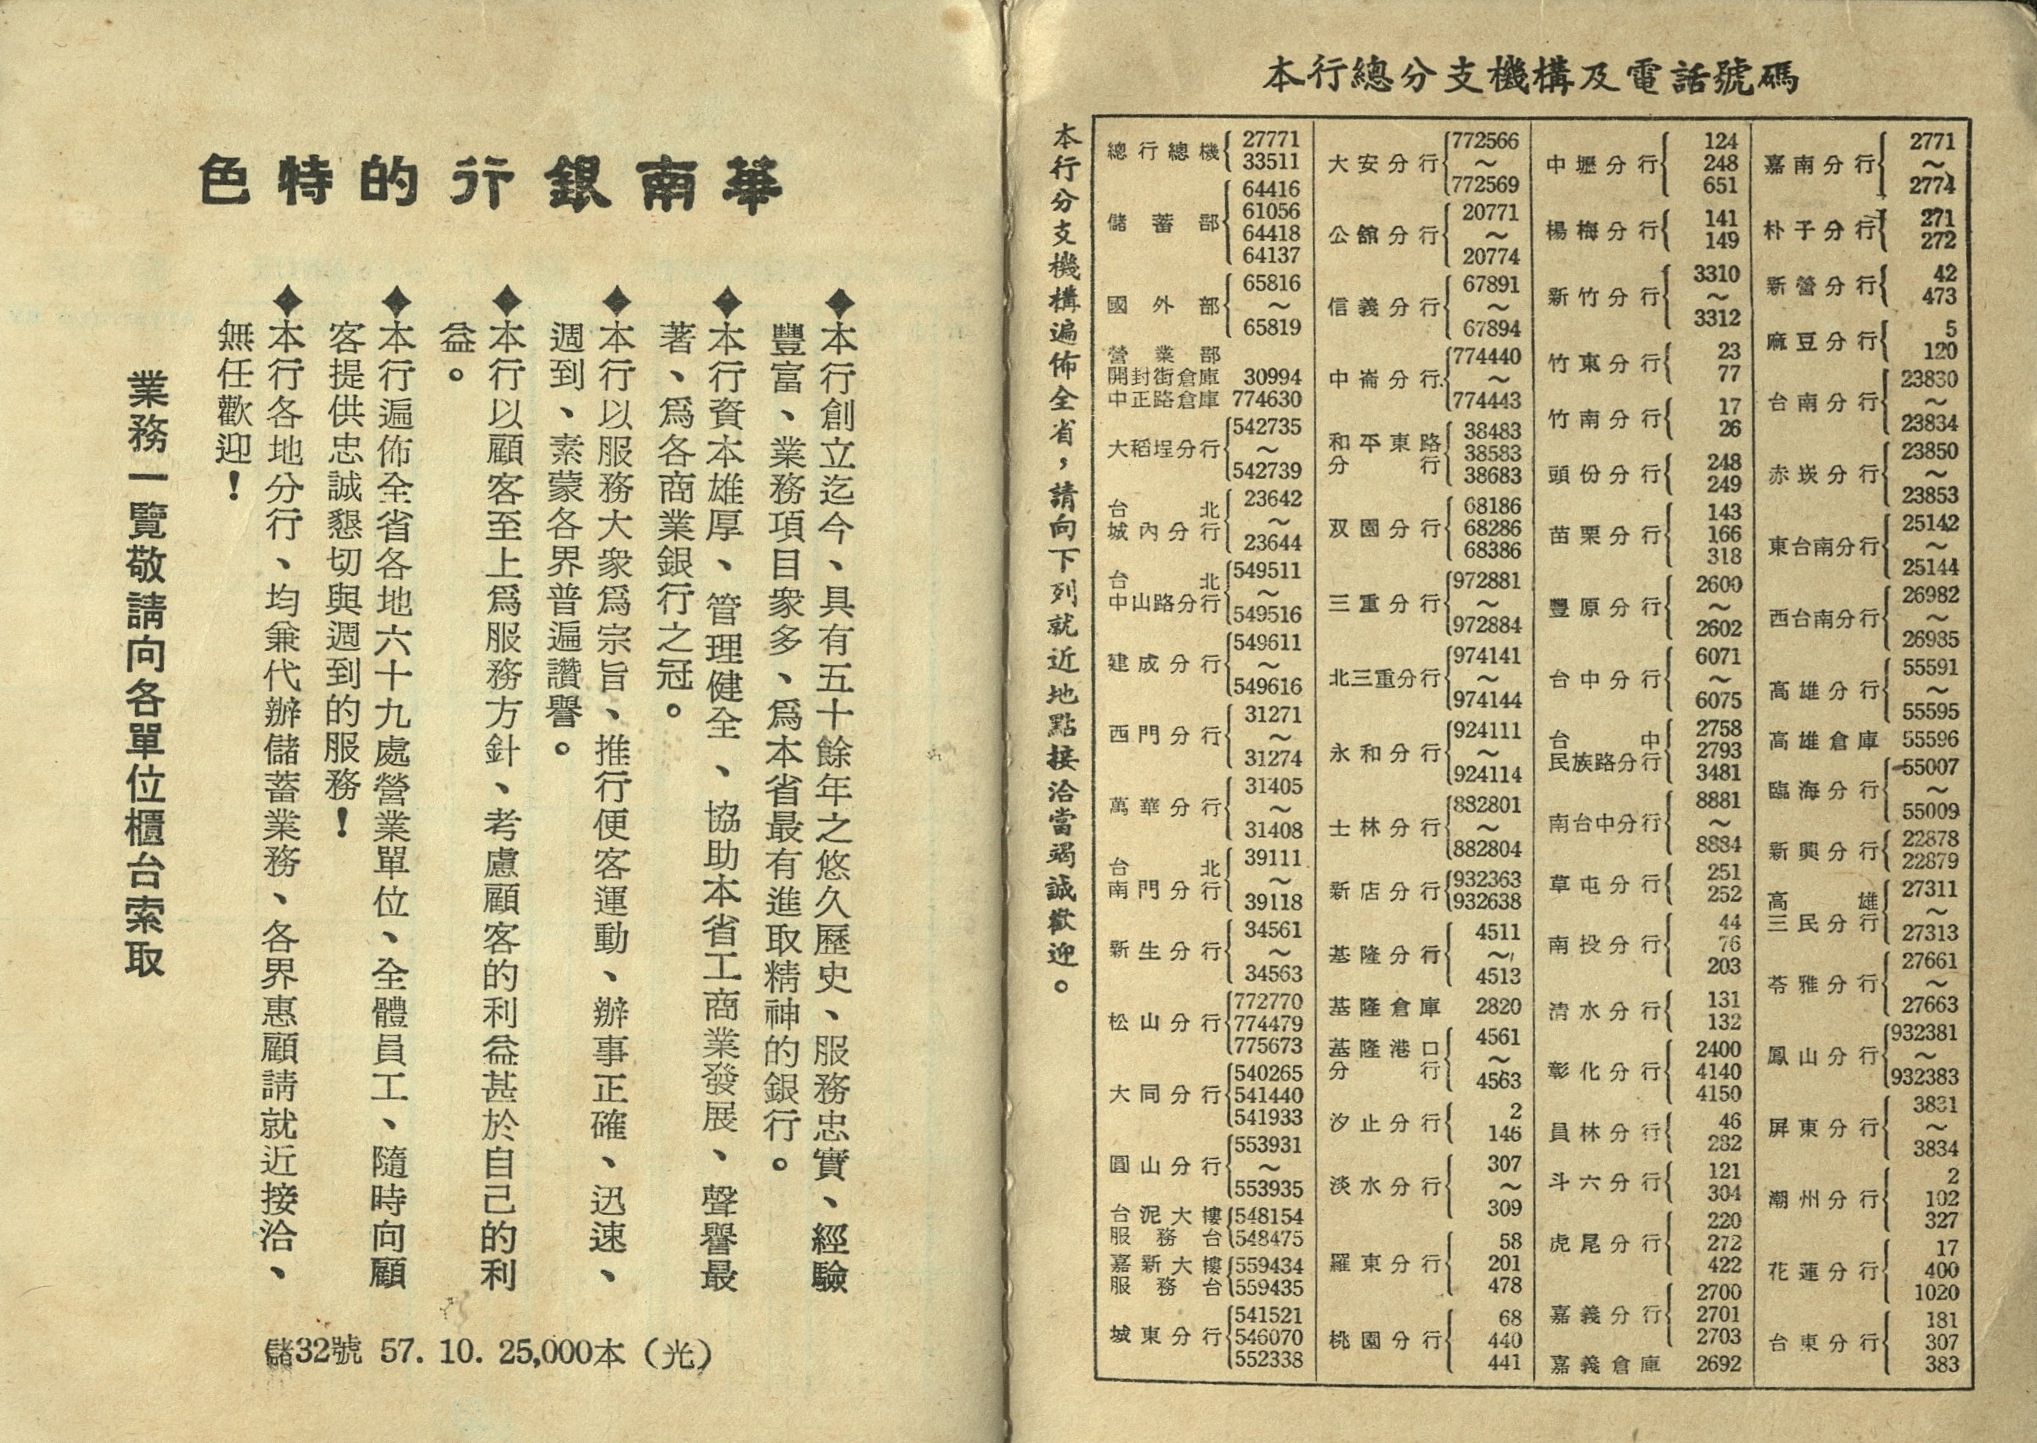 華南銀行的特色
◆本行創立迄今、具有五十餘年之悠久歷史、服務忠實、經驗
豐富、業務項目衆多、爲本省最有進取精神的銀行。
◆本行資本雄厚、管理健全、協助本省工商業發展、聲譽最
著、爲各商業銀行之冠。
◆本行以服務大衆爲宗旨、推行便客運動、辦事正確、迅速、
週到、素蒙各界普遍讚譽。
◆本行以顧客至上爲服務方針、考慮顧客的利益甚於自己的利
益。
◆本行遍佈全省各地六十九處營業單位、全體員工、隨時向顧
客提供忠誠懇切與週到的服務！
◆本行各地分行、均兼代辦儲蓄業務、各界惠顧請就近接洽、
無任歡迎！
業務一覽敬請向各單位櫃台索取
儲32號 57. 10. 25,000本（光）
本行總分支機構及電話號碼
本行分支機構遍佈全省，請向下列就近地點接洽當竭誠歡迎。
總行總機 27771 33511
儲蓄部 64416 61056 64418 64137
國外部 65816～65819
營業部
開封街倉庫 30994
中正路倉庫 774630
大稻埕分行 542735～542739
台北城內分行 23642～23644
台北中山路分行 549511～549516
建成分行 549611～549616
西門分行 31271～31274
萬華分行 31405～31408
台北南門分行 39111～39118
新生分行 34561～34563
松山分行 772770 774479 775673
大同分行 540265 541440 541933
圓山分行 553931～553935
台泥大樓服務台 548154 548475
嘉新大樓服務台 559434 559435
城東分行 541521 546070 552338
大安分行 772566～772569
公館分行 20771～20774
信義分行 67891～67894
中崙分行 774440～774443
和平東路分行 38483 38583 38683
双園分行 68186 68286 68386
三重分行 972881～972884
北三重分行 974141～974144
永和分行 924111～924114
士林分行 882801～882804
新店分行 932363 932638
基隆分行 4511～4513
基隆倉庫 2820
基隆港口分行 4561～4563
汐止分行 2 146
淡水分行 307～309
羅東分行 58 201 478
桃園分行 68 440 441
中壢分行 124 248 651
楊梅分行 141 149
新竹分行 3310～3312
竹東分行 23 77
竹南分行 17 26
頭份分行 248 249
苗栗分行 143 166 318
豐原分行 2600～2602
台中分行 6071～6075
台中民族路分行 2758 2793 3481
南台中分行 8881～8884
草屯分行 251 252
南投分行 44 76 203
清水分行 131 132
彰化分行 2400 4140 4150
員林分行 46 282
斗六分行 121 304
虎尾分行 220 272 422
嘉義分行 2700 2701 2703
嘉義倉庫 2692
嘉南分行 2771～2774
朴子分行 271 272
新營分行 42 473
麻豆分行 5 120
台南分行 23830～23834
赤崁分行 23850～23853
東台南分行 25142～25144
西台南分行 26982～26985
高雄分行 55591～55595
高雄倉庫 55596
臨海分行 55007～55009
新興分行 22878 22879
高雄三民分行 27311～27313
苓雅分行 27661～27663
鳳山分行 932381～932383
屏東分行 3831～3834
潮州分行 2 102 327
花蓮分行 17 400 1020
台東分行 181 307 383